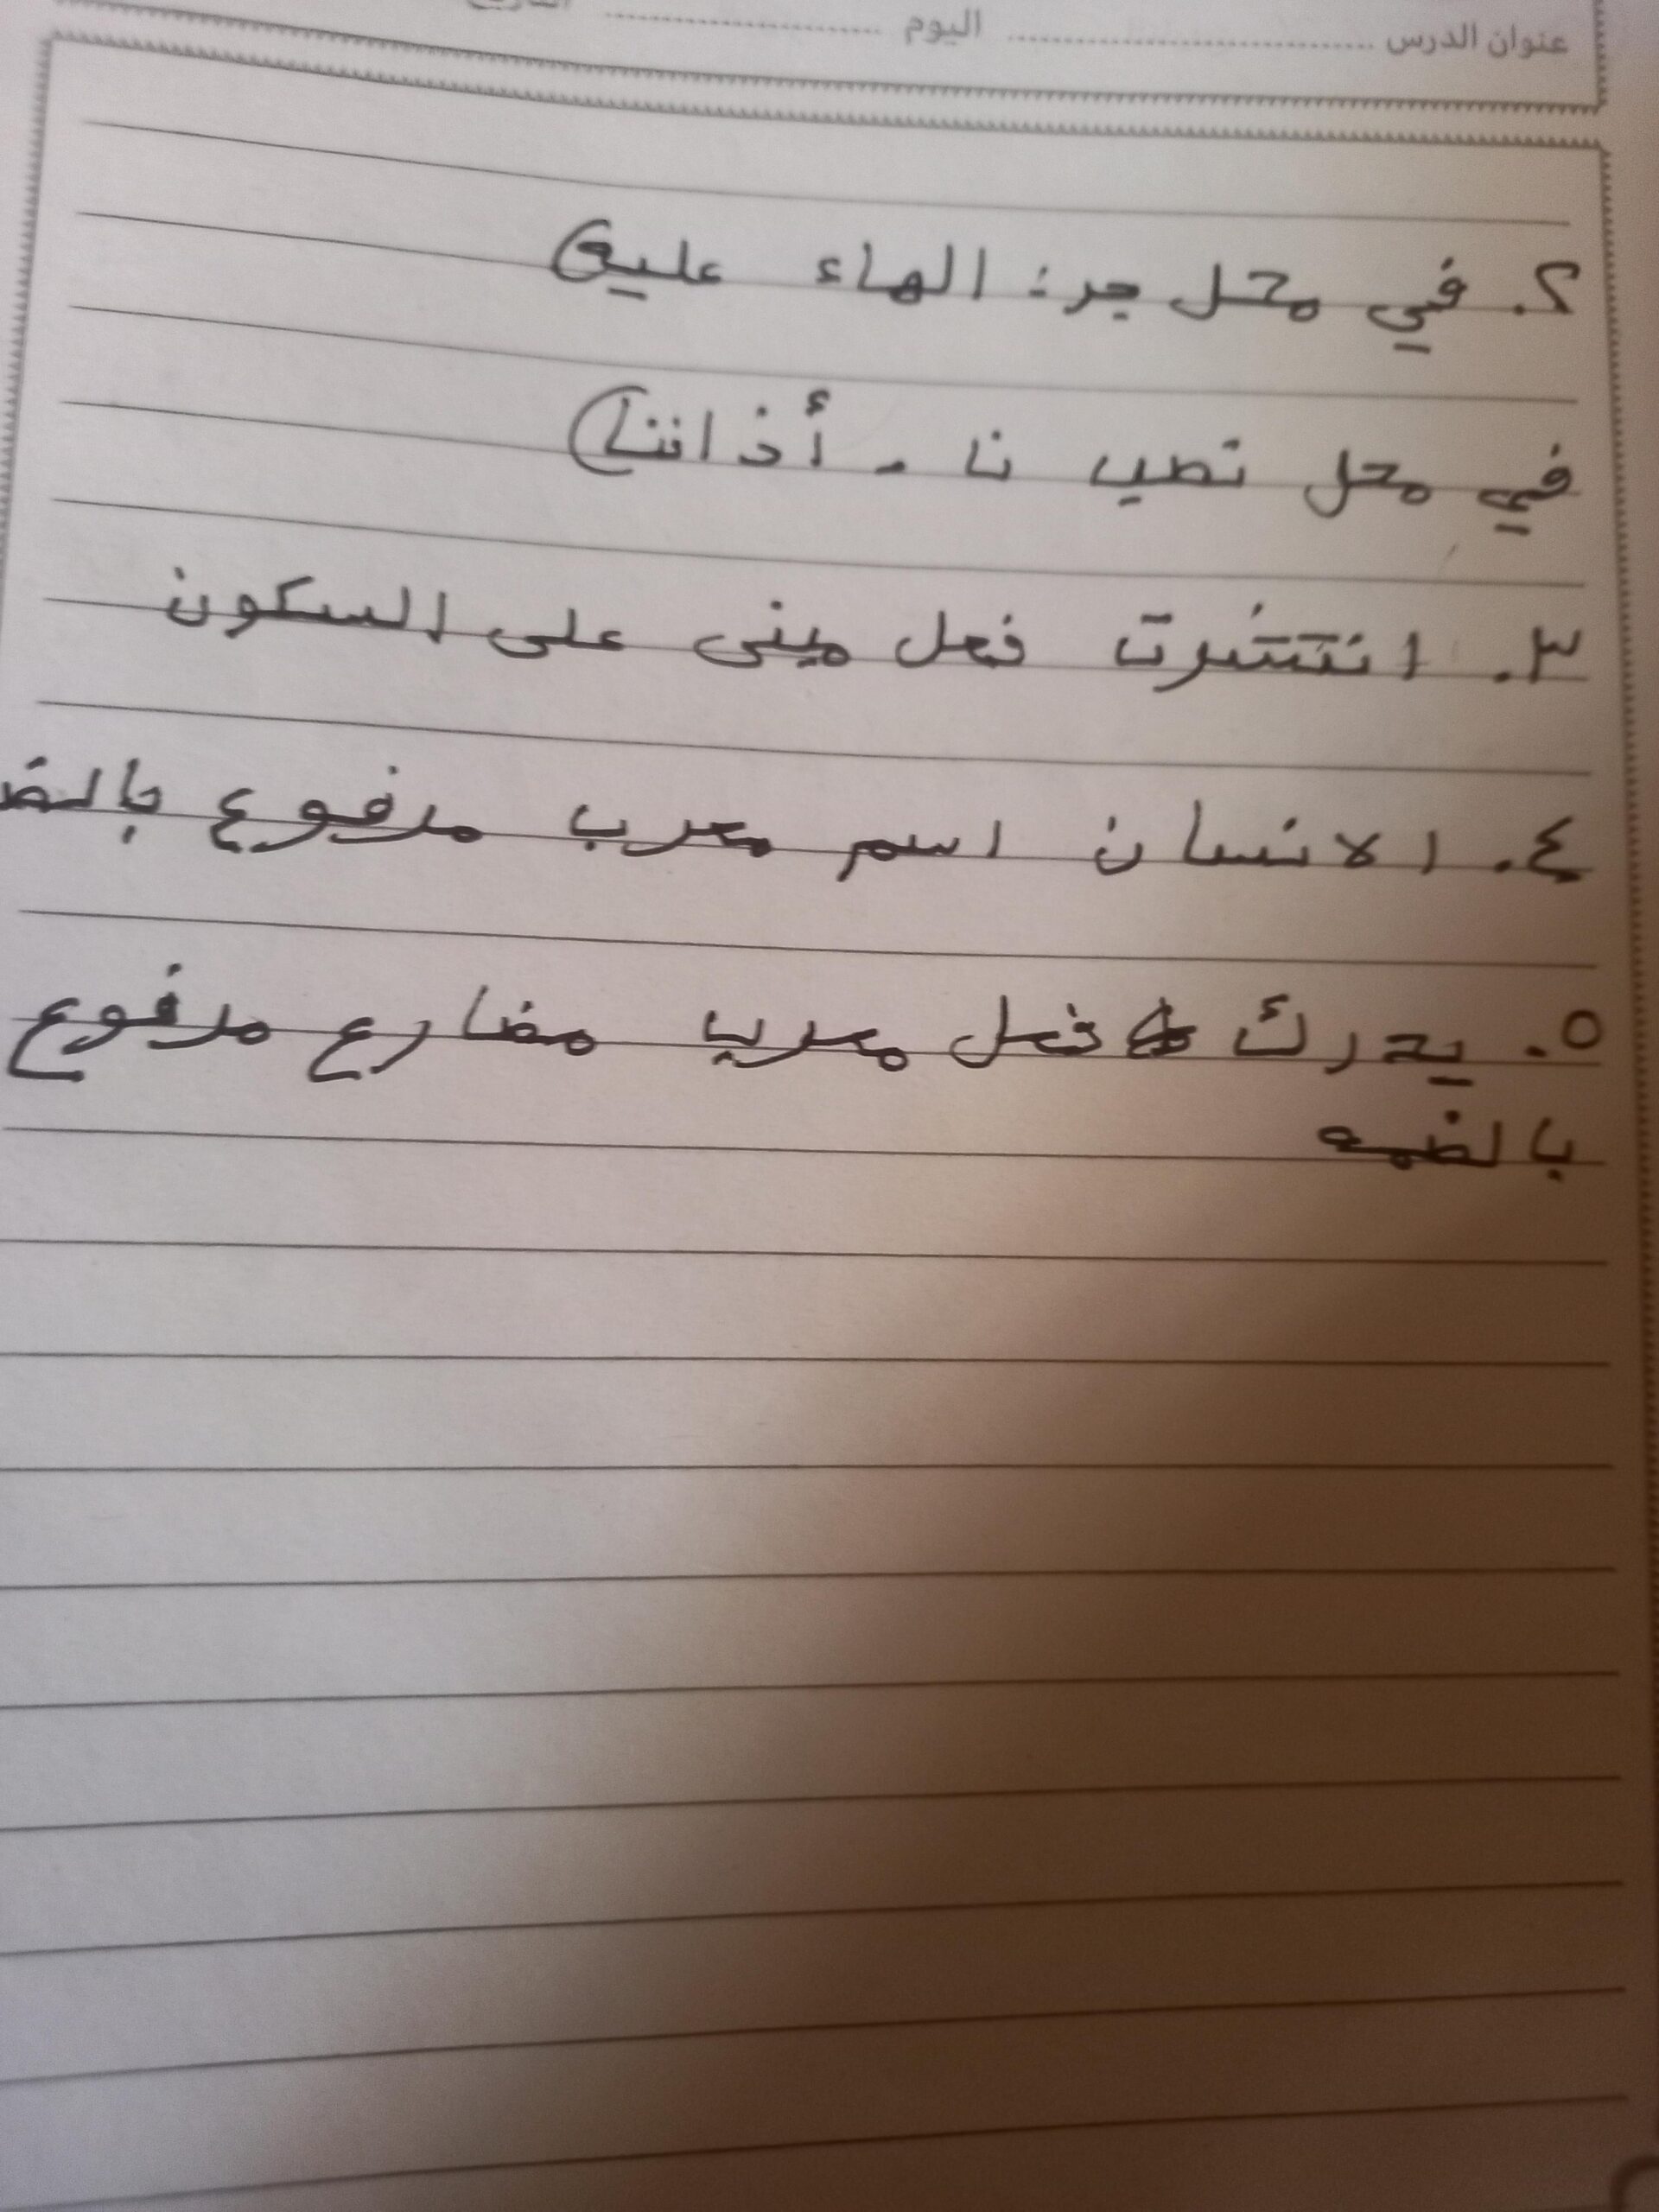 عنوان الدرس ........ اليوم ........
٢. في محل جر : الهاء عليه
في محل نصب نا - أذاننا
٣. انتشرت فعل مبنى على السكون
٤. الانسان اسم معرب مرفوع بالض
٥. يدرك فعل معرب مضارع مرفوع
بالضمه